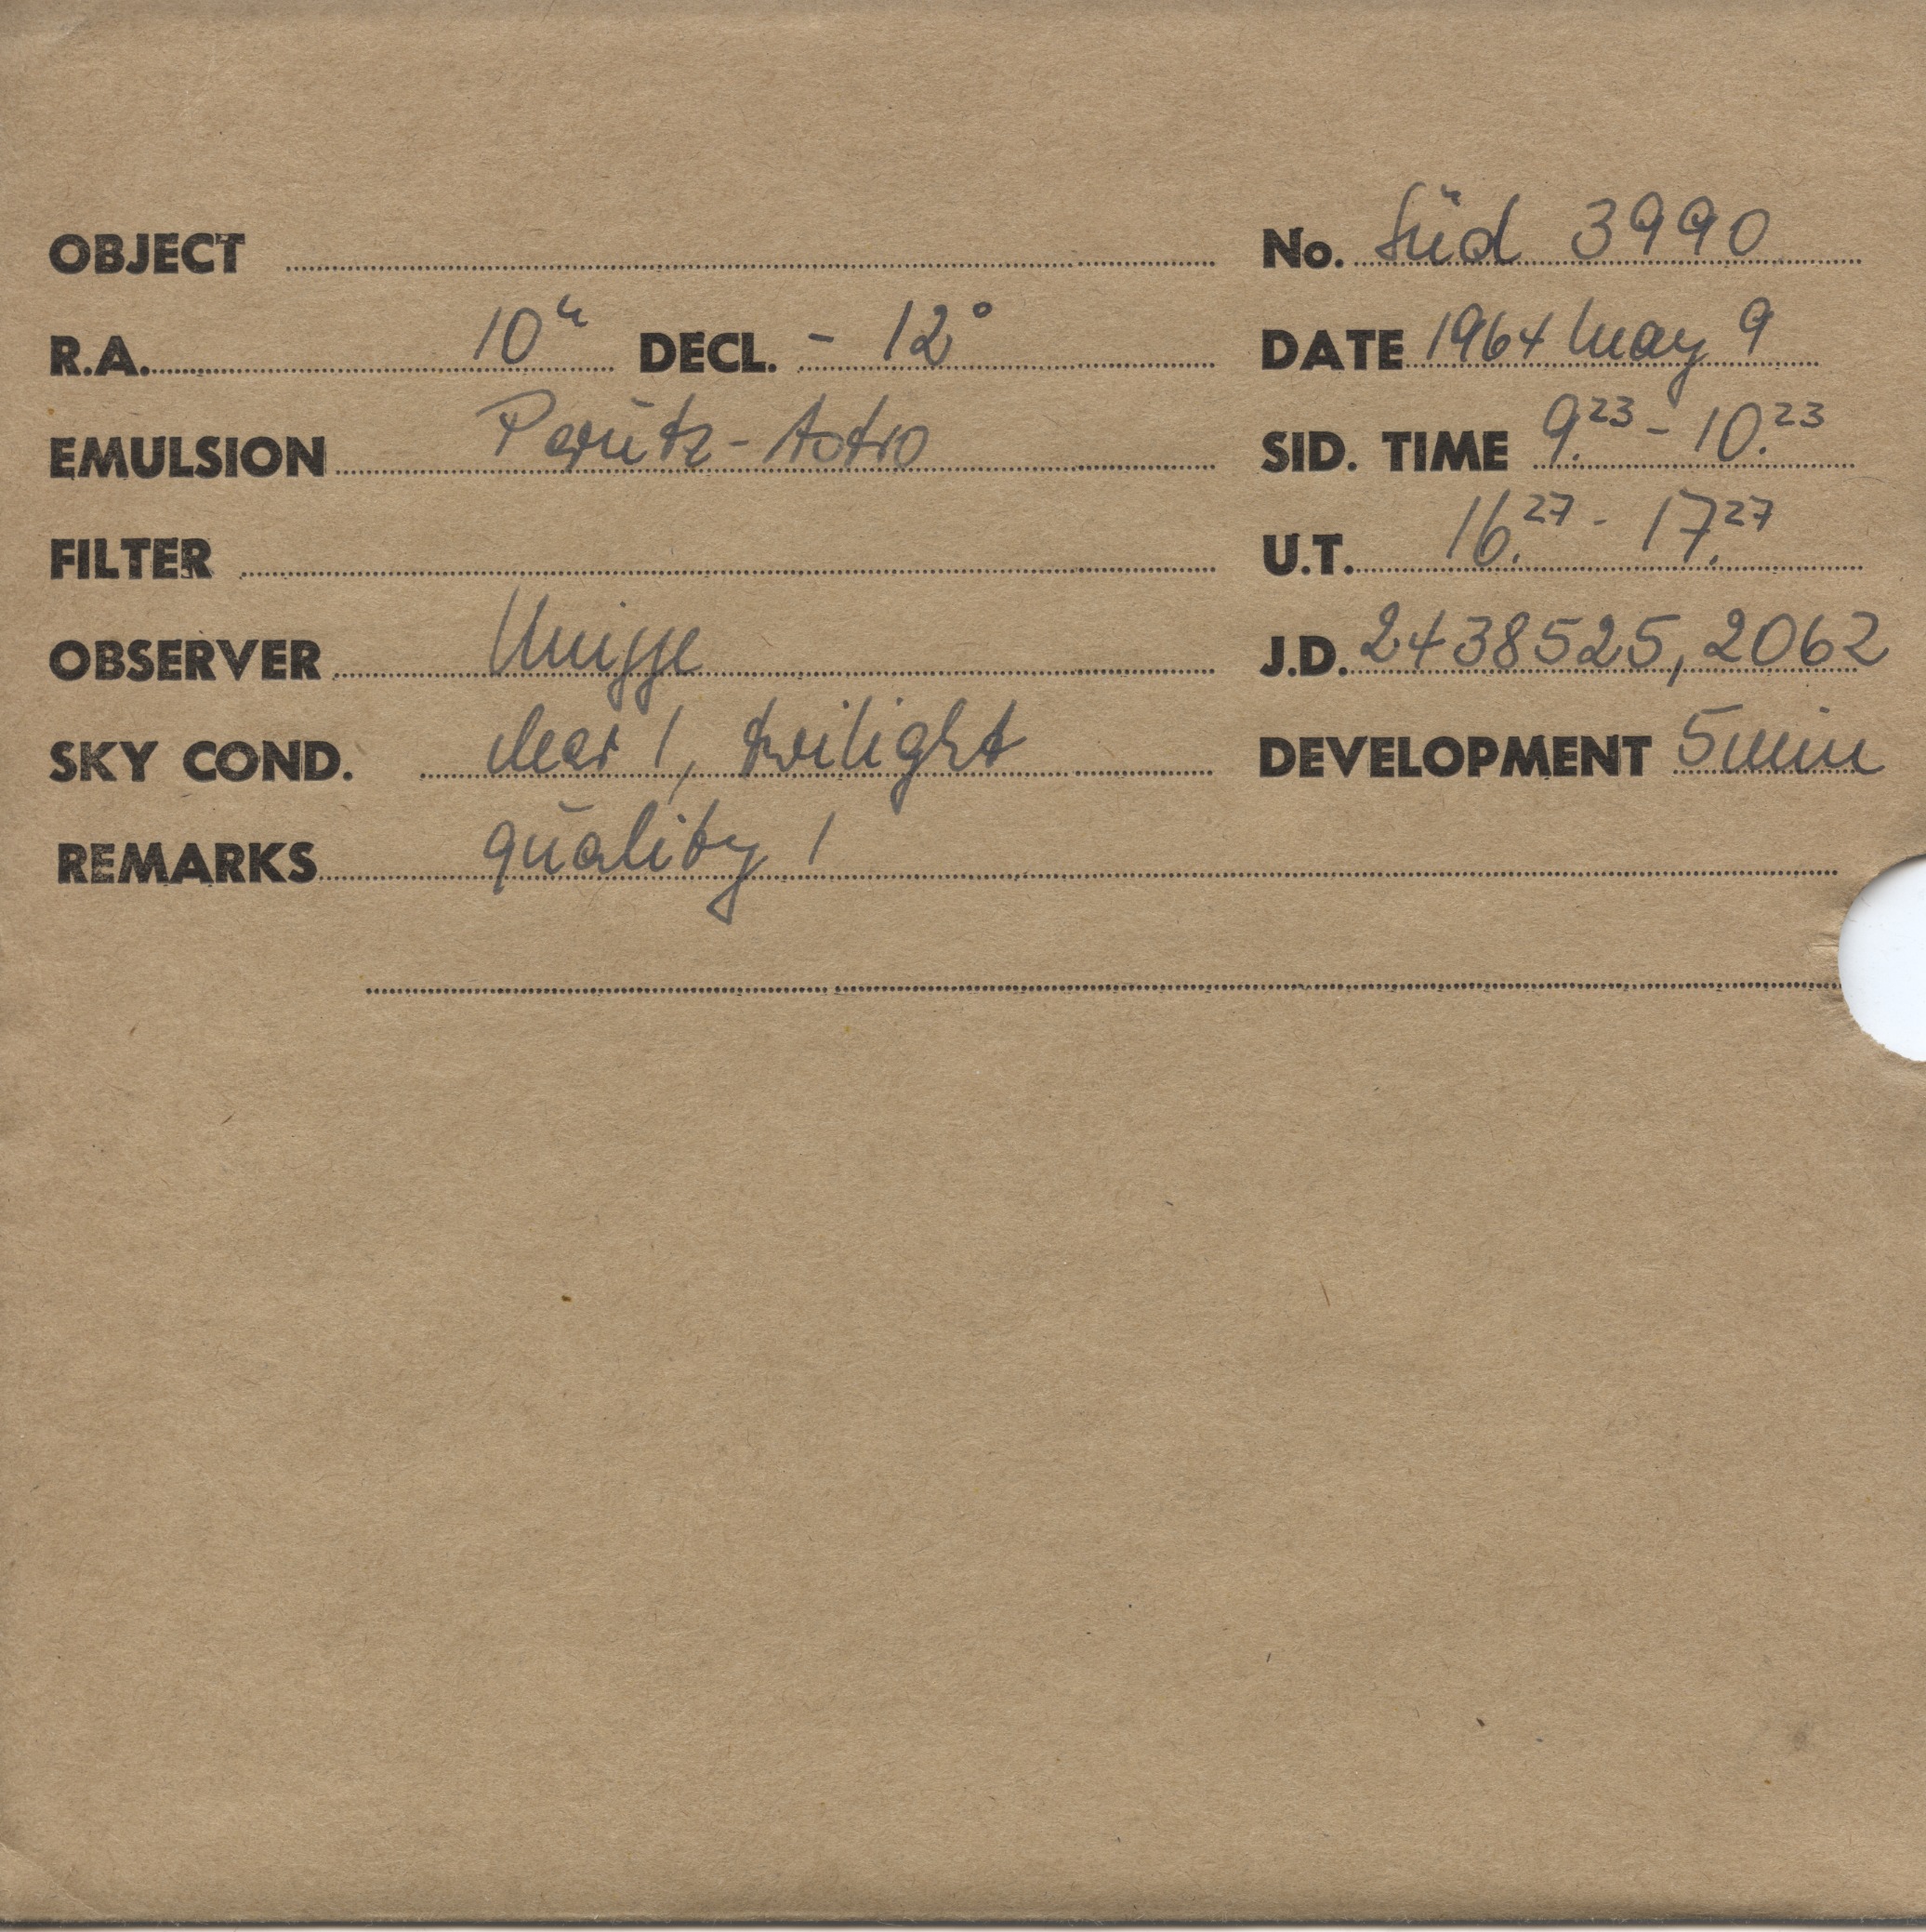 OBJECT No. Süd 3990
R.A. 10h DECL. - 12° DATE 1964 May 9
EMULSION Perutz-Astro SID. TIME 9.23 - 10.23
FILTER U.T. 16.27 - 17.27
OBSERVER J.D. 2438525,2062
SKY COND. clear 1, twilight DEVELOPMENT 5 min
REMARKS quality 1